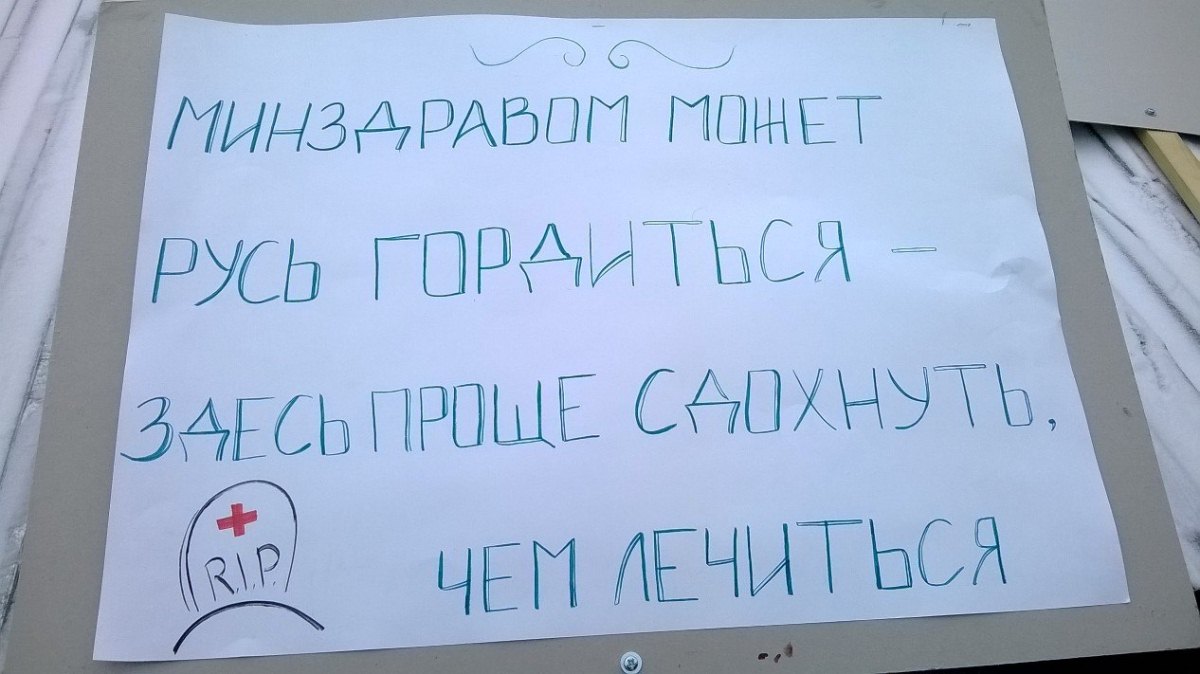 МИНЗДРАВОМ МОЖЕТ
РУСЬ ГОРДИТЬСЯ –
ЗДЕСЬ ПРОЩЕ СДОХНУТЬ,
ЧЕМ ЛЕЧИТЬСЯ
R.I.P.